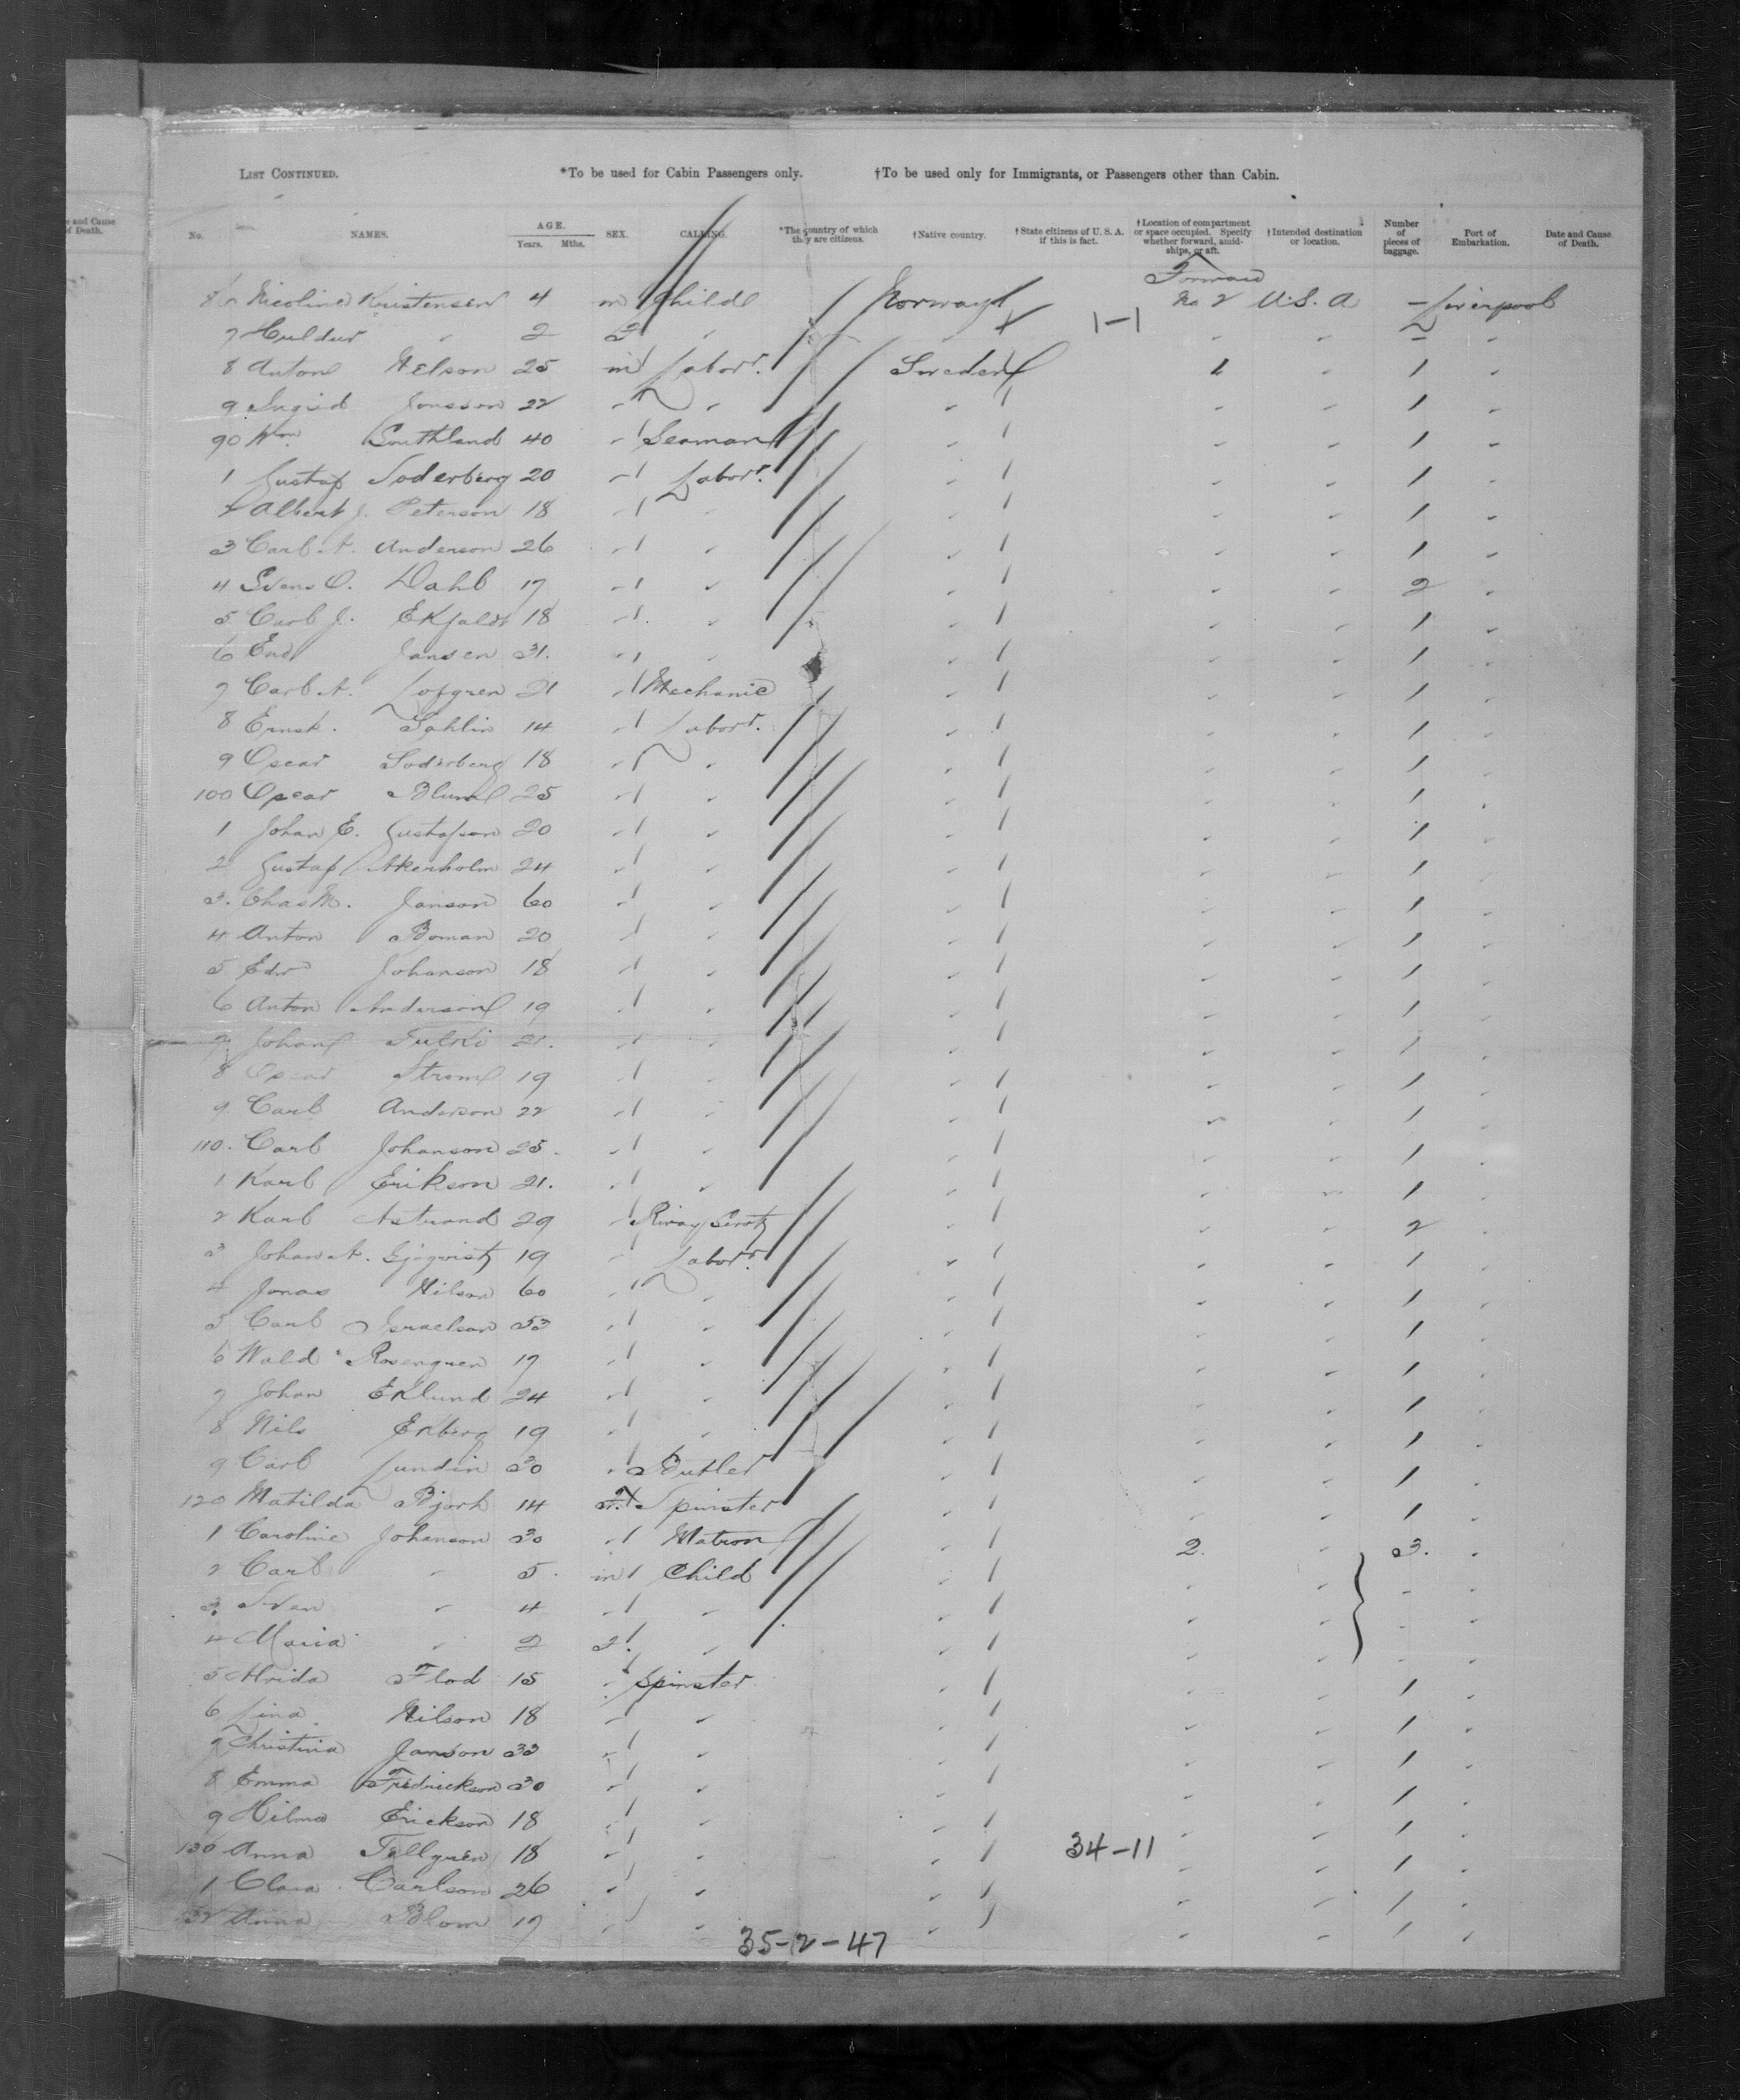 LIST CONTINUED. *To be used for Cabin Passengers only. †To be used only for Immigrants, or Passengers other than Cabin.
e and Cause of Death. No. NAMES. AGE. Years. Mths. SEX. CALLING. *The country of which they are citizens. †Native country. †State citizens of U. S. A. if this is fact. †Location of compartment or space occupied. Specify whether forward, amidships, or aft. †Intended destination or location. Number of pieces of baggage. Port of Embarkation. Date and Cause of Death.
Forward
86 Nicoline Kristensen 4 m Child Norway No 2 U.S. A — Liverpool
7 Huldur " 2 " 1-1 " " — "
8 Anton Nelson 25 m Labor. Sweden 1 " 1 "
9 Ingrid Jonsson 22 " " " " " 1 "
90 Wm Southland 40 " Seaman " " " 1 "
1 Gustaf Soderberg 20 " Labor. " " " 1 "
2 Albert J. Peterson 18 " " " " " 1 "
3 Carl A. Anderson 26 " " " " " 1 "
4 Svens O. Dahl 17 " " " " " 2 "
5 Carl J. Ekfaldt 18 " " " " " 1 "
6 End Jansen 31. " " " " " 1 "
7 Carl A. Lofgren 21 " Mechanic " " " 1 "
8 Ernst. Sahlin 14 " Labor. " " " 1 "
9 Oscar Soderberg 18 " " " " " 1 "
100 Oscar Blum 25 " " " " " 1 "
1 Johan E. Gustafson 20 " " " " " 1 "
2 Gustaf Akerholm 24 " " " " " 1 "
3. Chas M. Janson 60 " " " " " 1 "
4 Anton Boman 20 " " " " " 1 "
5 Edw Johanson 18 " " " " " 1 "
6 Anton Anderson 19 " " " " " 1 "
7. Johan 21. " " " " " 1 "
8 Oscar Strom 19 " " " " " 1 "
9 Carl Anderson 22 " " " " " 1 "
110. Carl Johanson 25. " " " " " 1 "
1 Karl Erikson 21. " " " " " 1 "
2 Karl Astrand 29 " " " " 2 "
3 Johan A. 19 " Labor. " " " 1 "
4 Jonas Nilson 60 " " " " " 1 "
5 Carl Israelson 53 " " " " " 1 "
6 Wald Rosengren 17 " " " " " 1 "
7 Johan Eklund 24 " " " " " 1 "
8 Nils Ekberg 19 " " " " " 1 "
9 Carl Lundin 30 " Butler " " " 1 "
120 Matilda Bjork 14 Spinster " " " 1 "
1 Caroline Johanson 30 " Matron " 2. " 3. "
2 Carl " 5. m Child " " " - "
3. Sven " 4 " " " " " - "
4 Maria " 2 " " " " - "
5 Flod 15 " Spinster " " " 1 "
6 Lina Nilson 18 " " " " " 1 "
7 Christina Janson 33 " " " " " 1 "
8 Emma Fredrickson 30 " " " " " 1 "
9 Hilma Erickson 18 " " " " " 1 "
130 Anna Tellgren 18 " " " 34-11 " " 1 "
1 Clara Carlson 26 " " " " " 1 "
132 Anna Blom 17 " " " " " 1 "
35-12-47